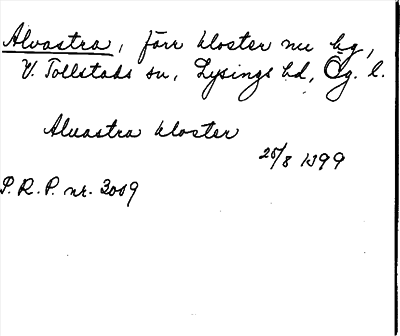 Alvastra, förr kloster nu kg,
V. Tollstads sn, Lysings hd, Ög. l.
Alvastra kloster
25/8 1399
P.R.P. nr. 3009